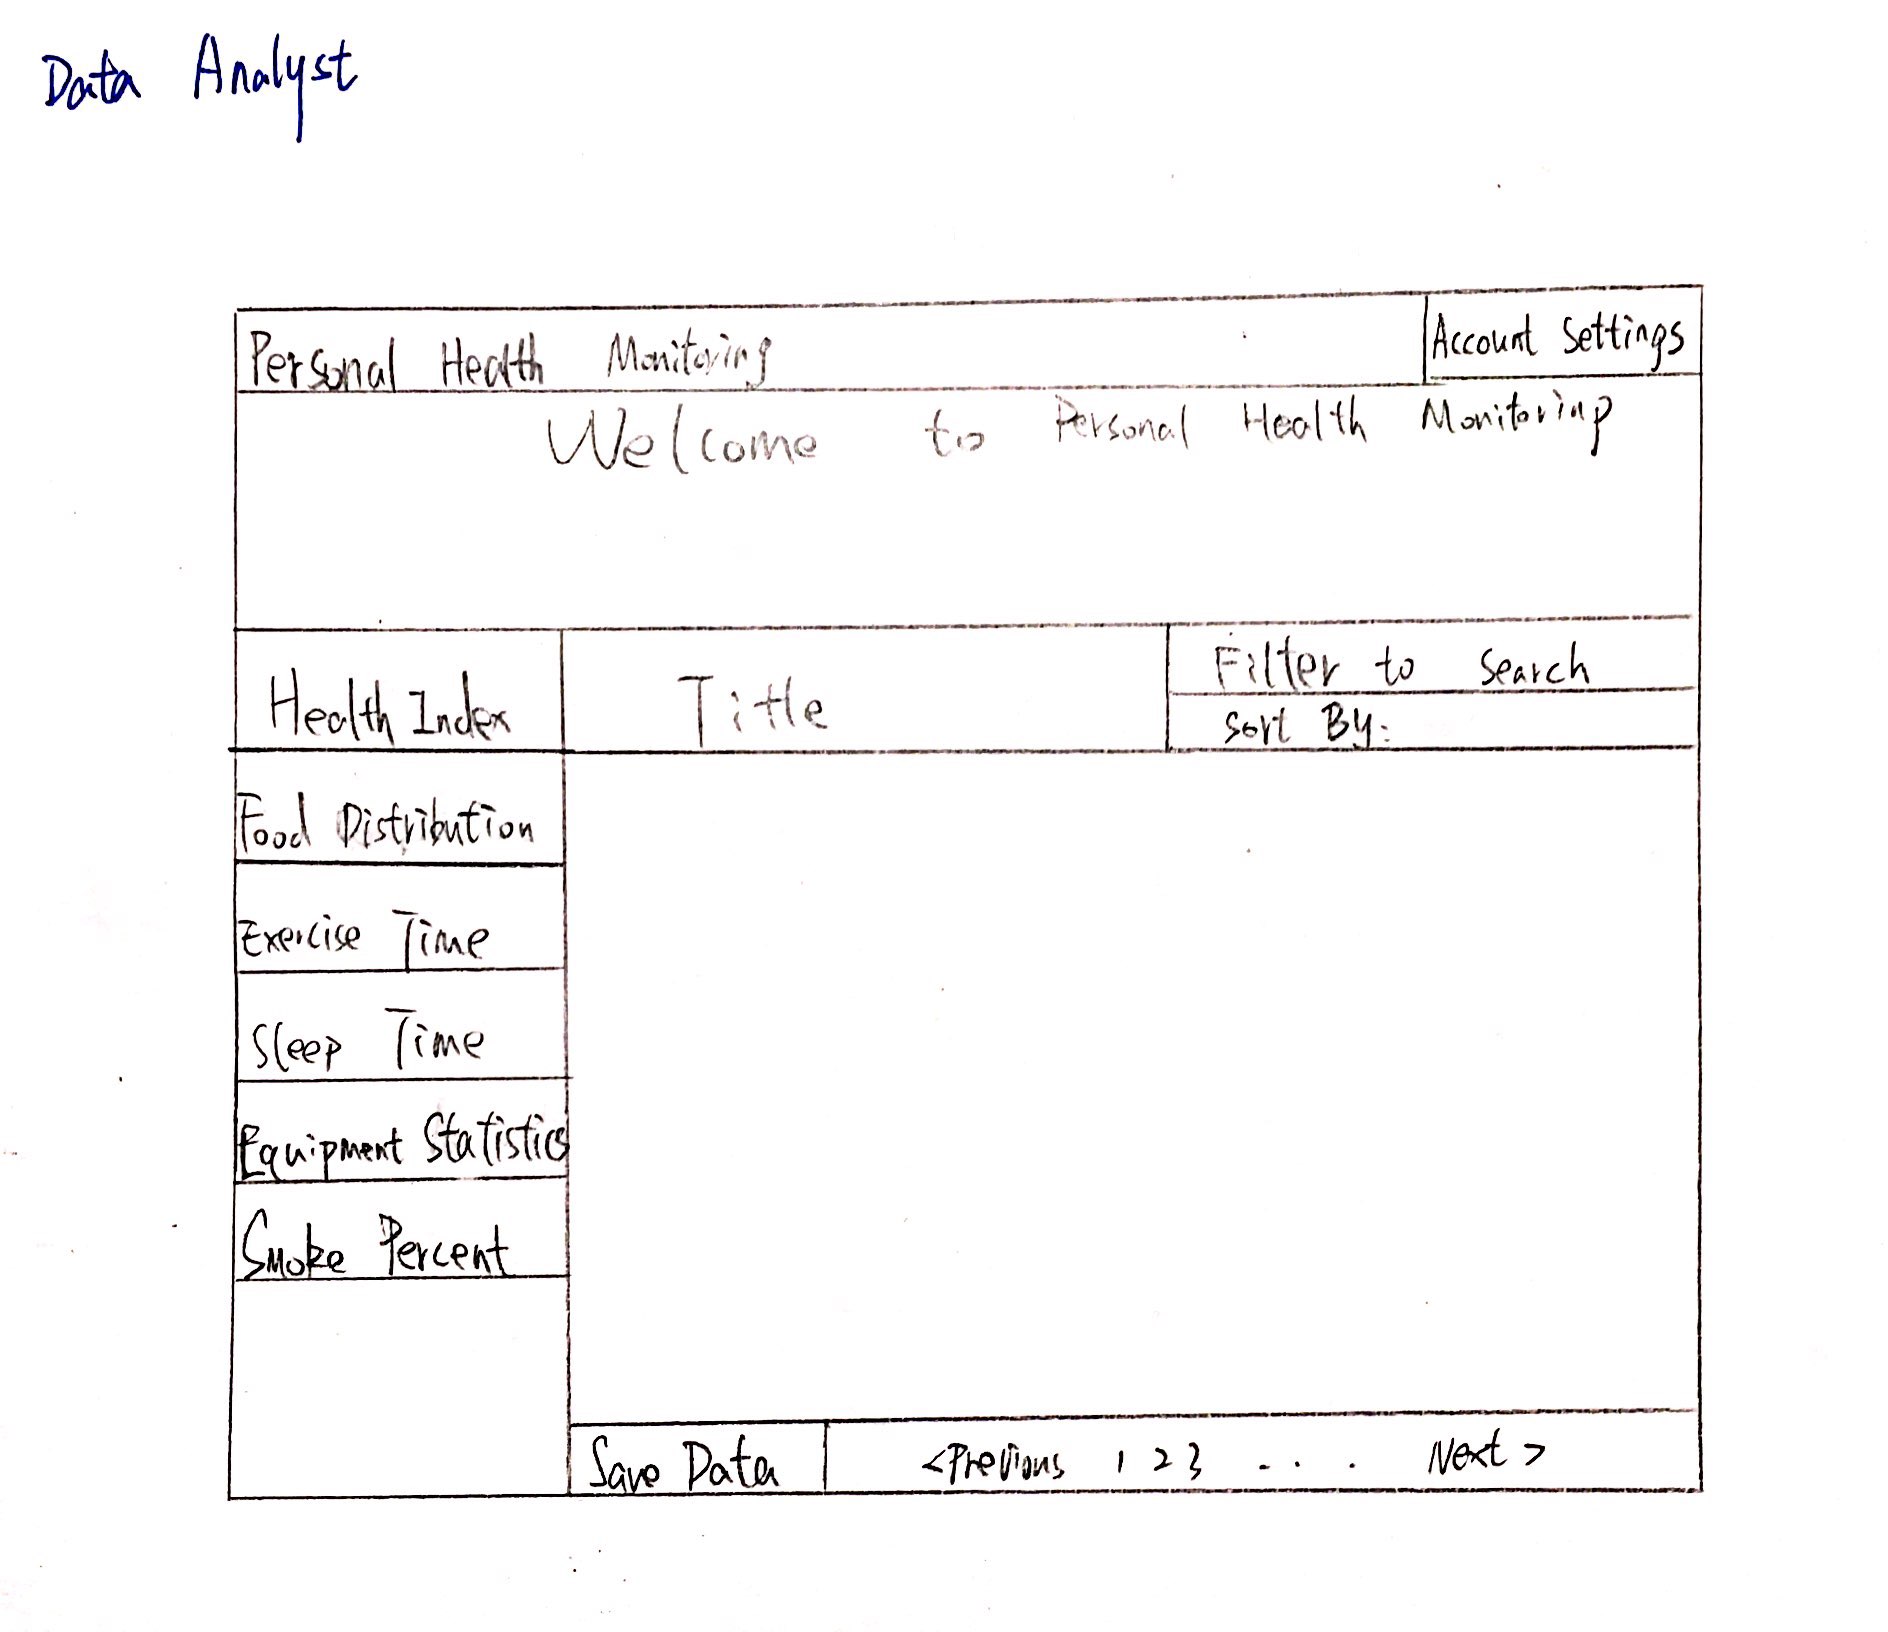 Data Analyst
Personal Health Monitoring
Account Settings
Welcome to Personal Health Monitoring
Health Index
Title
Filter to Search
Sort By:
Food Distribution
Exercise Time
Sleep Time
Equipment Statistics
Smoke Percent
Save Data
<Previous 1 2 3 . . . . Next >